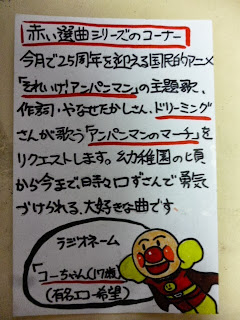 赤い選曲シリーズのコーナー
今月で25周年を迎える国民的アニメ
「それいけ!アンパンマン」の主題歌、
作詞・やなせたかしさん、ドリーミング
さんが歌う「アンパンマンのマーチ」を
リクエストします。幼稚園の頃
から今まで、日々口ずさんで勇気
づけられる、大好きな曲です。
ラジオネーム
「コーちゃん(17歳)
(有名エコー希望)